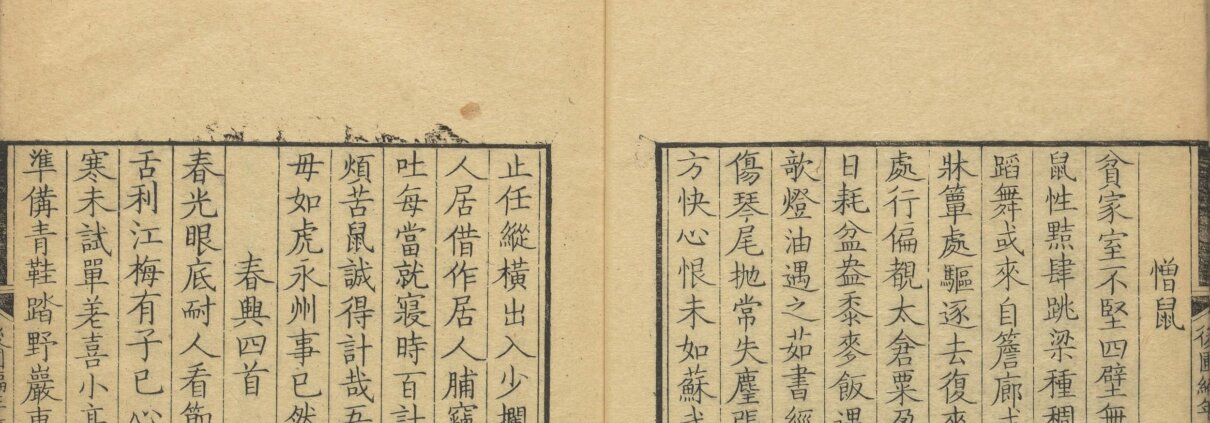 後圃編年
憎鼠
貧家室不堅四壁無
鼠性黠肆跳梁種稠
蹈舞或來自簷廊
牀簟處驅逐去復來
處行偏覩太倉粟
日耗盆盎黍麥飯遇
歌燈油遇之茹書經
傷琴尾拋常失麈
方快心恨未如蘇
止任縱橫出入少攔
人居借作居人脯竊
吐每當就寢時百計
煩苦鼠誠得計哉吾
毋如虎永州事已然
春興四首
春光眼底耐人看節
舌利江梅有子已心
寒未試單羞喜小
準備青鞋踏野巖東